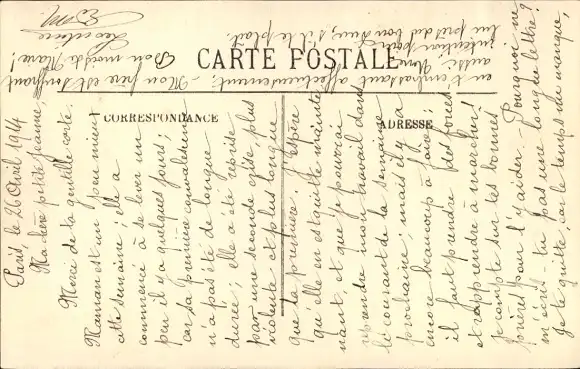 CARTE POSTALE
CORRESPONDANCE
ADRESSE
Paris, le 26 Avril 1914
Ma chère petite Jeanne,
Merci de ta gentille carte.
Maman est un peu mieux
cette semaine ; elle a
commencé à se lever un
peu il y a quelques jours ;
car sa première convalescence
n'a pas été de longue
durée ; elle a été reprise
par une seconde crise, plus
violente et plus longue
que la première ; J'espère
qu'elle en est quitte mainte
nant et que je pourrai
reprendre mon travail dans
le courant de la semaine
prochaine ; mais il y a
encore beaucoup à faire ;
il faut prendre des forces
et rapprendre à marcher !
Je compte sur tes bonnes
prières pour l'y aider. - Pourquoi ne
m'écris-tu pas une longue lettre ?
Je te quitte, car le temps me manque,
en t'embrassant affectueusement. - Mon père est souffrant
aussi. Une
intention pour
lui près du bon Dieu, s'il te plaît.
Bon mois de Marie !